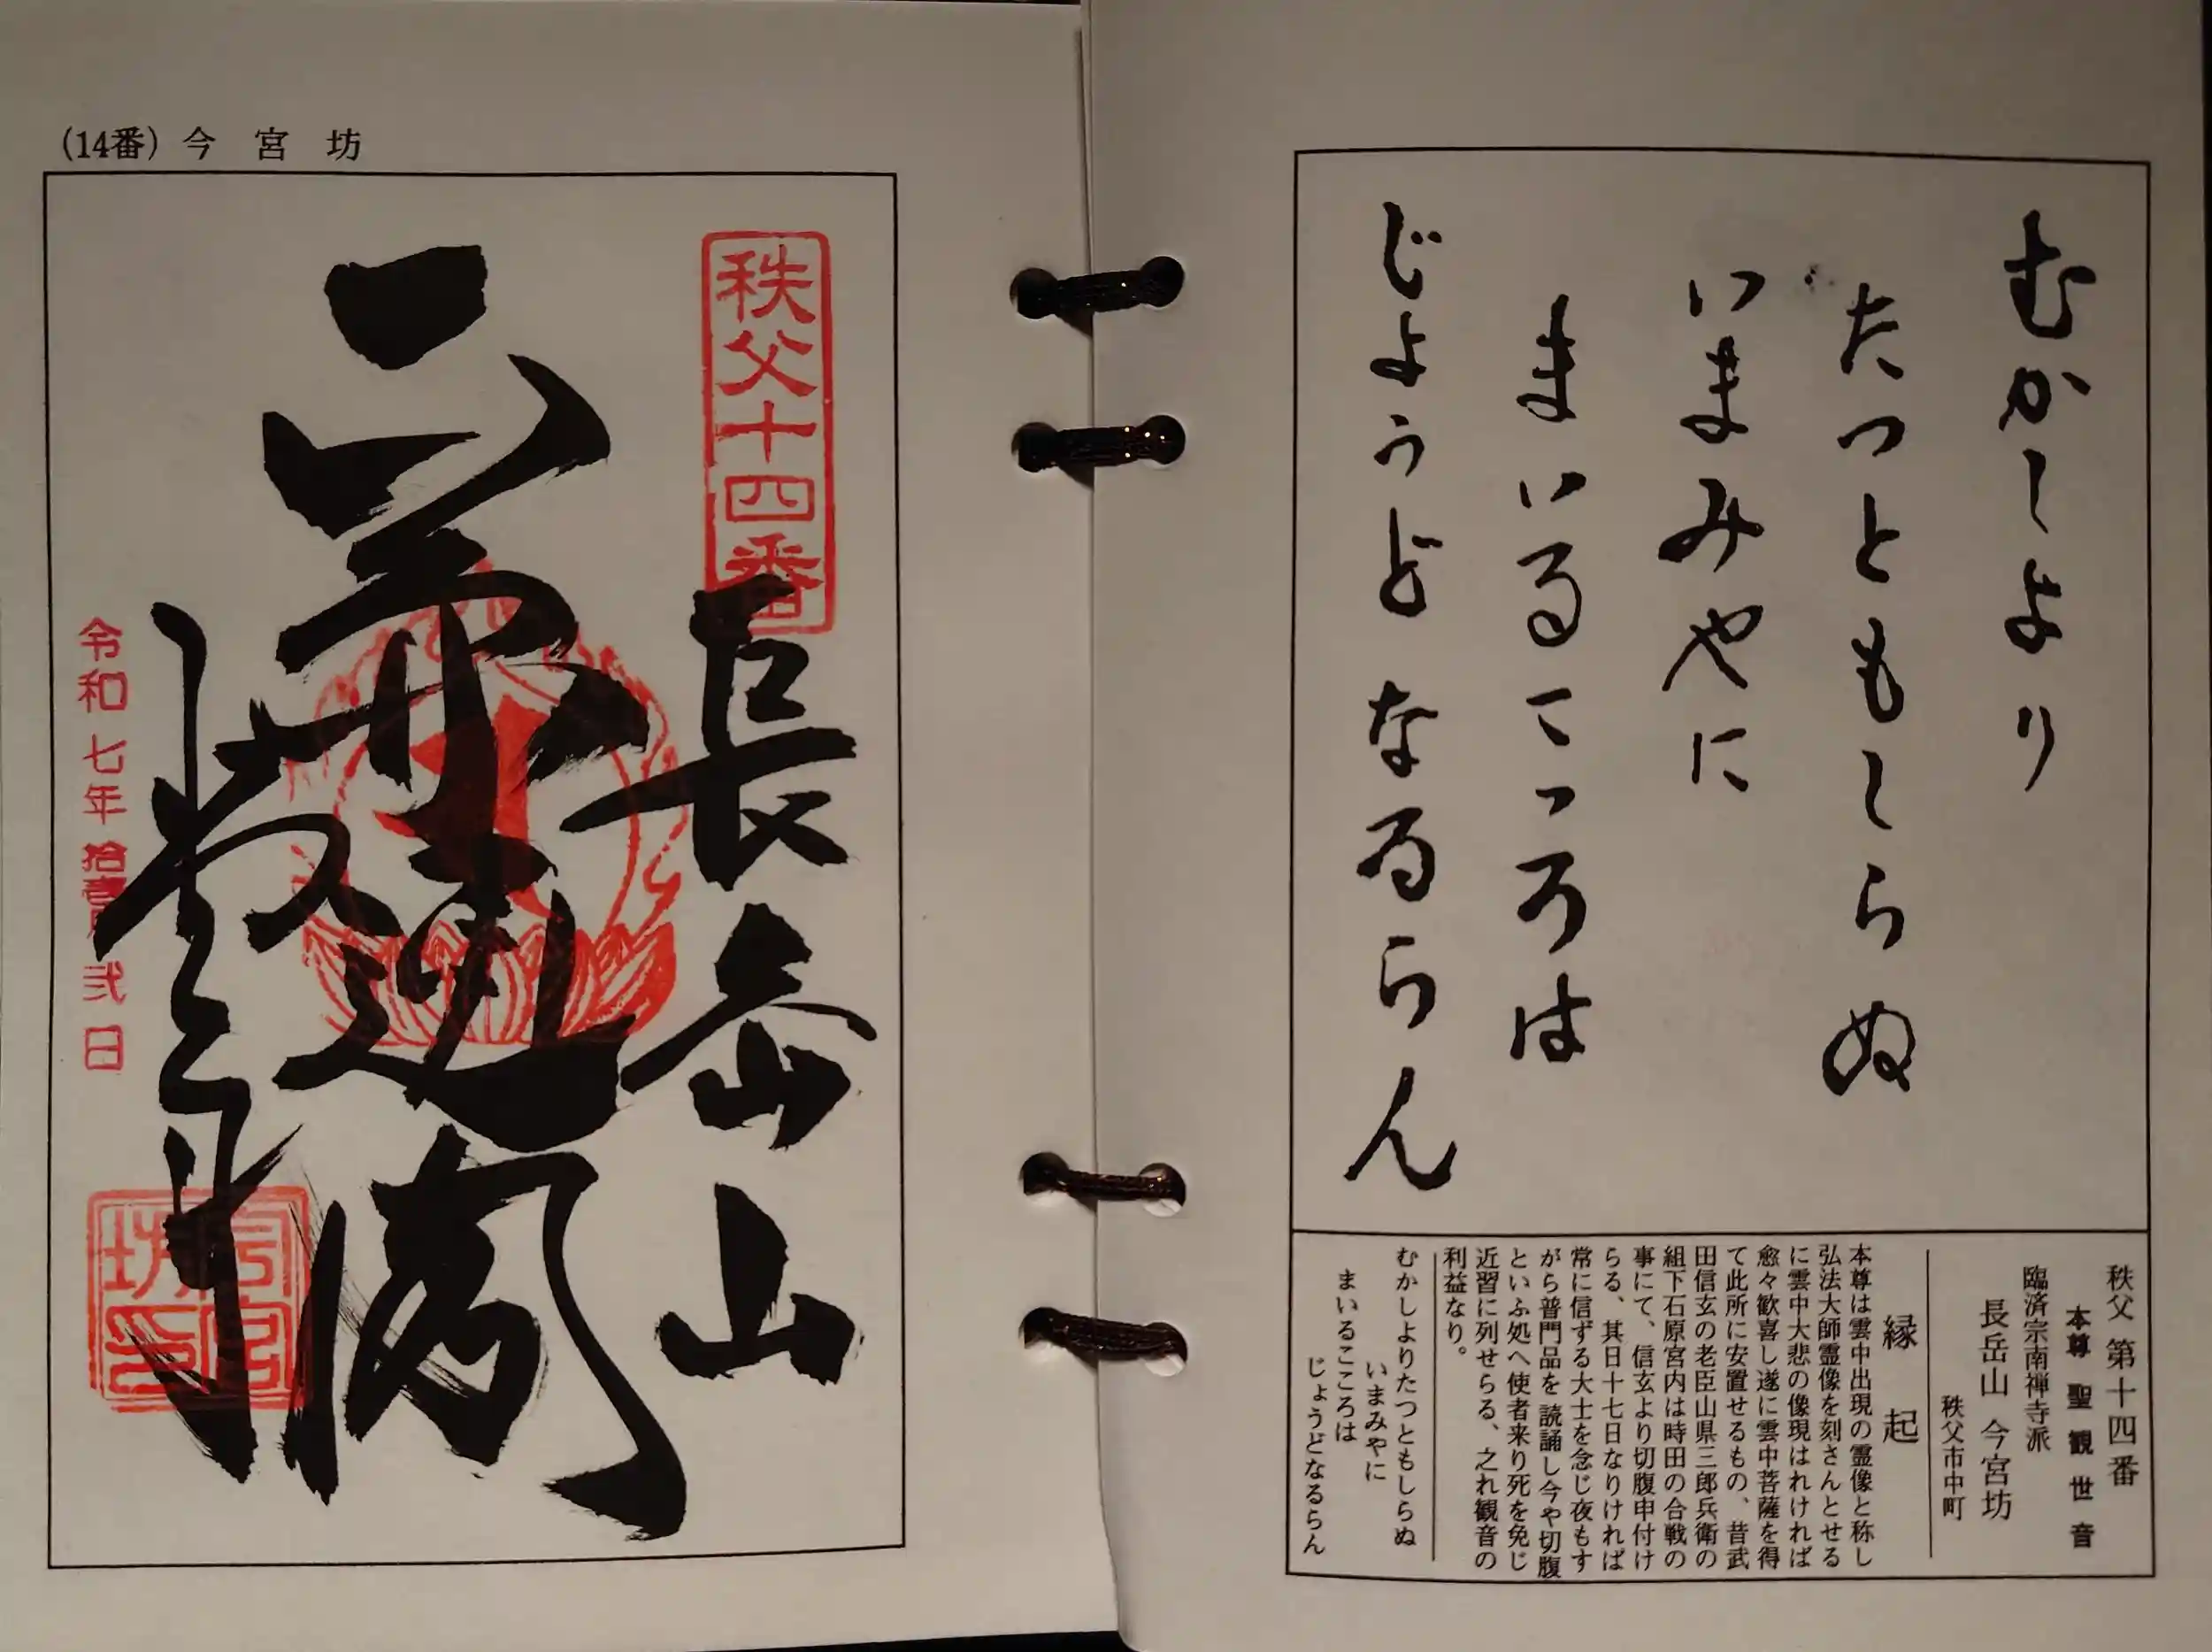 むかしより
たつともしらぬ
いまみやに
まいるこころは
じょうど なるらん
秩父 第十四番
本尊 聖観世音
臨済宗南禅寺派
長岳山 今宮坊
秩父市中町
縁起
本尊は雲中出現の霊像と称し
弘法大師霊像を刻さんとせる
に雲中大悲の像現はれければ
愈々歓喜し遂に雲中菩薩を得
て此所に安置せるもの、昔武
田信玄の老臣山県三郎兵衛の
組下石原宮内は時田の合戦の
事にて、信玄より切腹申付け
らる、其日十七日なりければ
常に信ずる大士を念じ夜もす
がら普門品を読誦し今や切腹
といふ処へ使者来り死を免じ
近習に列せらる、之れ観音の
利益なり。
むかしよりたつともしらぬ
いまみやに
まいるこころは
じょうどなるらん
(14番) 今宮坊
秩父十四番
長岳山
令和七年拾壹月弐日